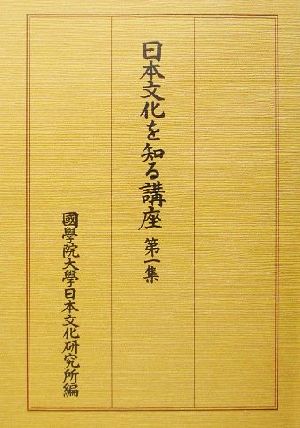 日本文化を知る講座 第一集
國學院大學日本文化研究所編